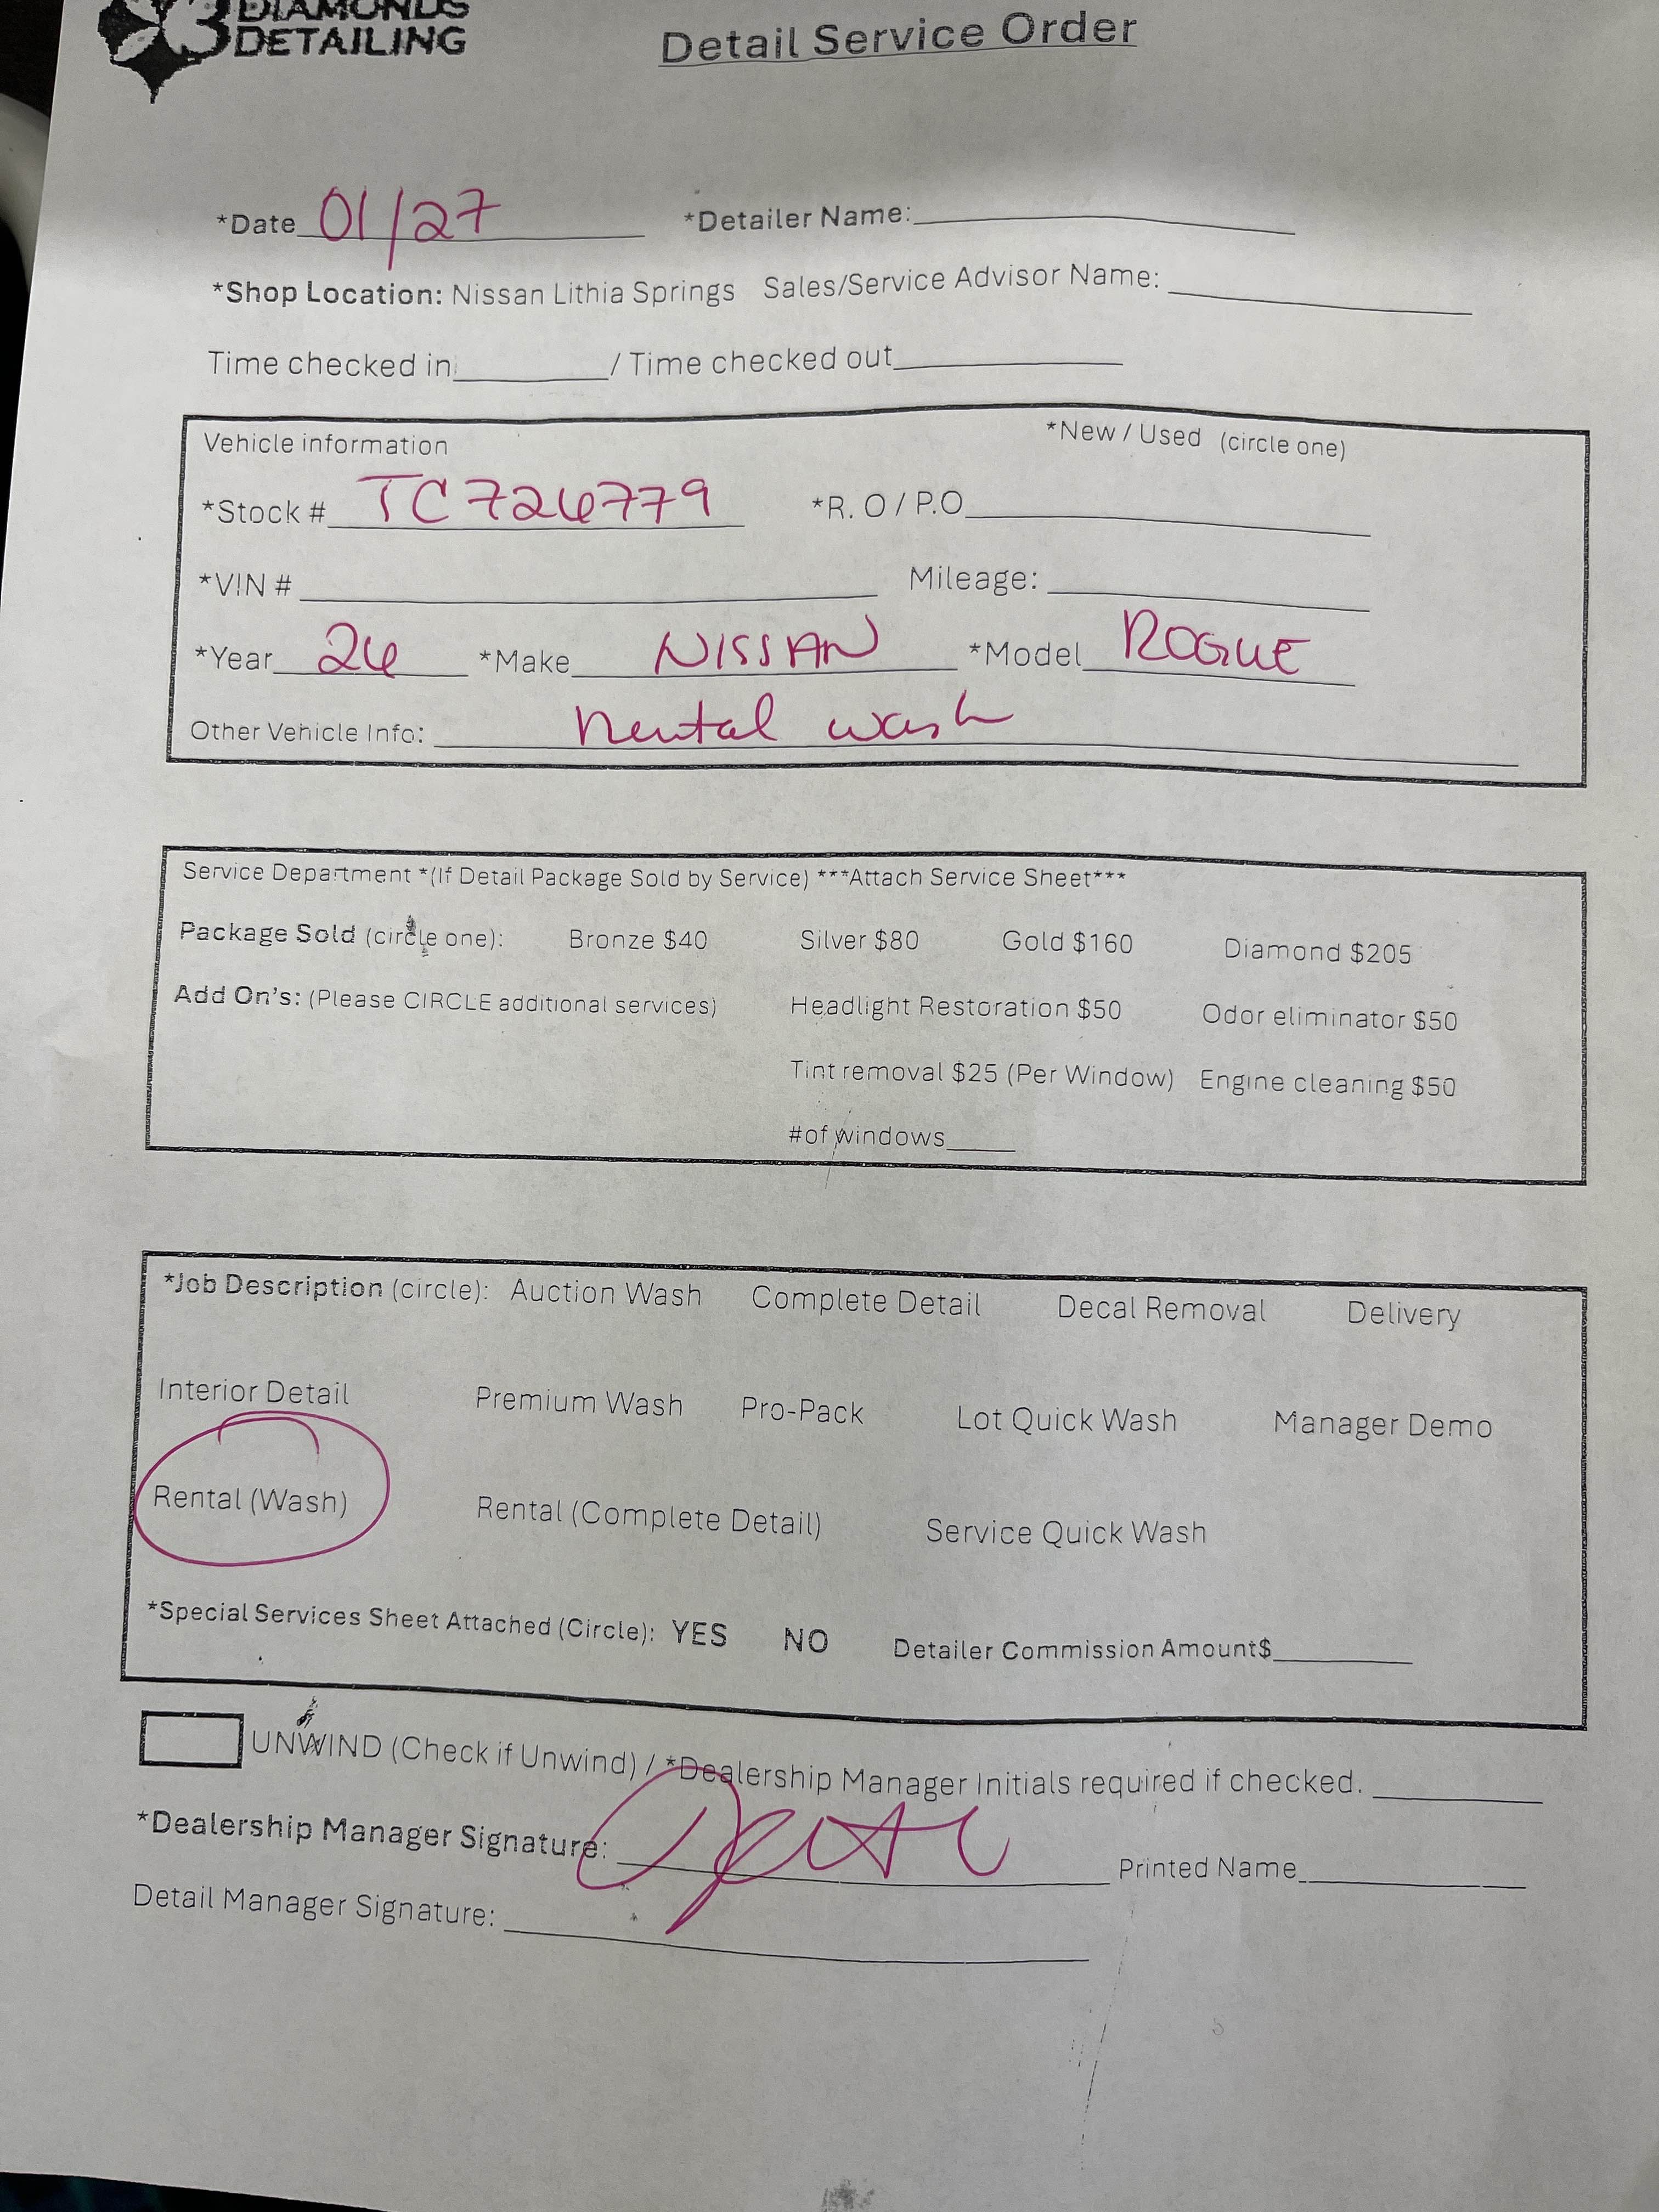 3 DIAMONDS
DETAILING
Detail Service Order
*Date 01/27 *Detailer Name:
*Shop Location: Nissan Lithia Springs Sales/Service Advisor Name:
Time checked in / Time checked out
Vehicle information *New / Used (circle one)
*Stock # TC726779 *R.O / P.O
*VIN # Mileage:
*Year 26 *Make NISSAN *Model ROGUE
Other Vehicle Info: Rental wash
Service Department *(If Detail Package Sold by Service) ***Attach Service Sheet***
Package Sold (circle one): Bronze $40 Silver $80 Gold $160 Diamond $205
Add On's: (Please CIRCLE additional services) Headlight Restoration $50 Odor eliminator $50
Tint removal $25 (Per Window) Engine cleaning $50
#of windows
*Job Description (circle): Auction Wash Complete Detail Decal Removal Delivery
Interior Detail Premium Wash Pro-Pack Lot Quick Wash Manager Demo
Rental (Wash) Rental (Complete Detail) Service Quick Wash
*Special Services Sheet Attached (Circle): YES NO Detailer Commission Amount$
UNWIND (Check if Unwind) / *Dealership Manager Initials required if checked.
*Dealership Manager Signature: Printed Name
Detail Manager Signature: